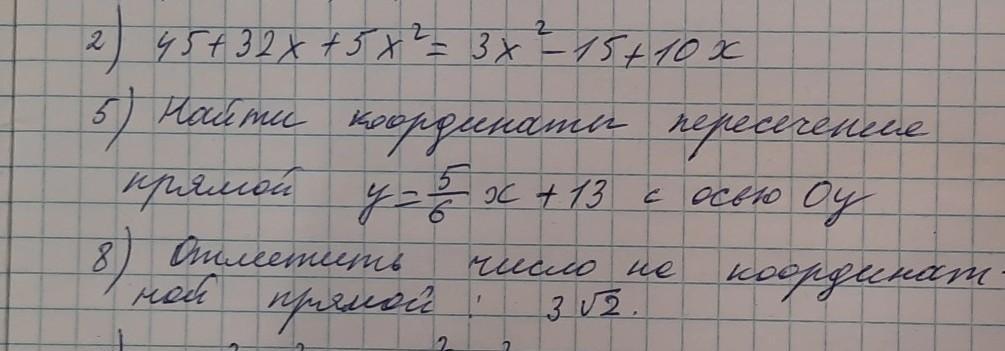 2) 45+32x+5x²=3x²-15+10x
5) Найти координаты пересечение
прямой y=5/6 x+13 с осью Oy
8) Отметить число на координат
ной прямой: 3√2.